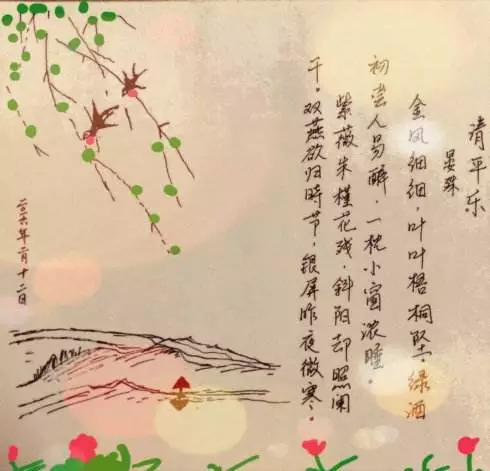 清平乐
晏殊
金风细细，叶叶梧桐坠。绿酒
初尝人易醉，一枕小窗浓睡。
紫薇朱槿花残，斜阳却照阑
干。双燕欲归時节，银屏昨夜微寒。
二〇一六年二月十二日